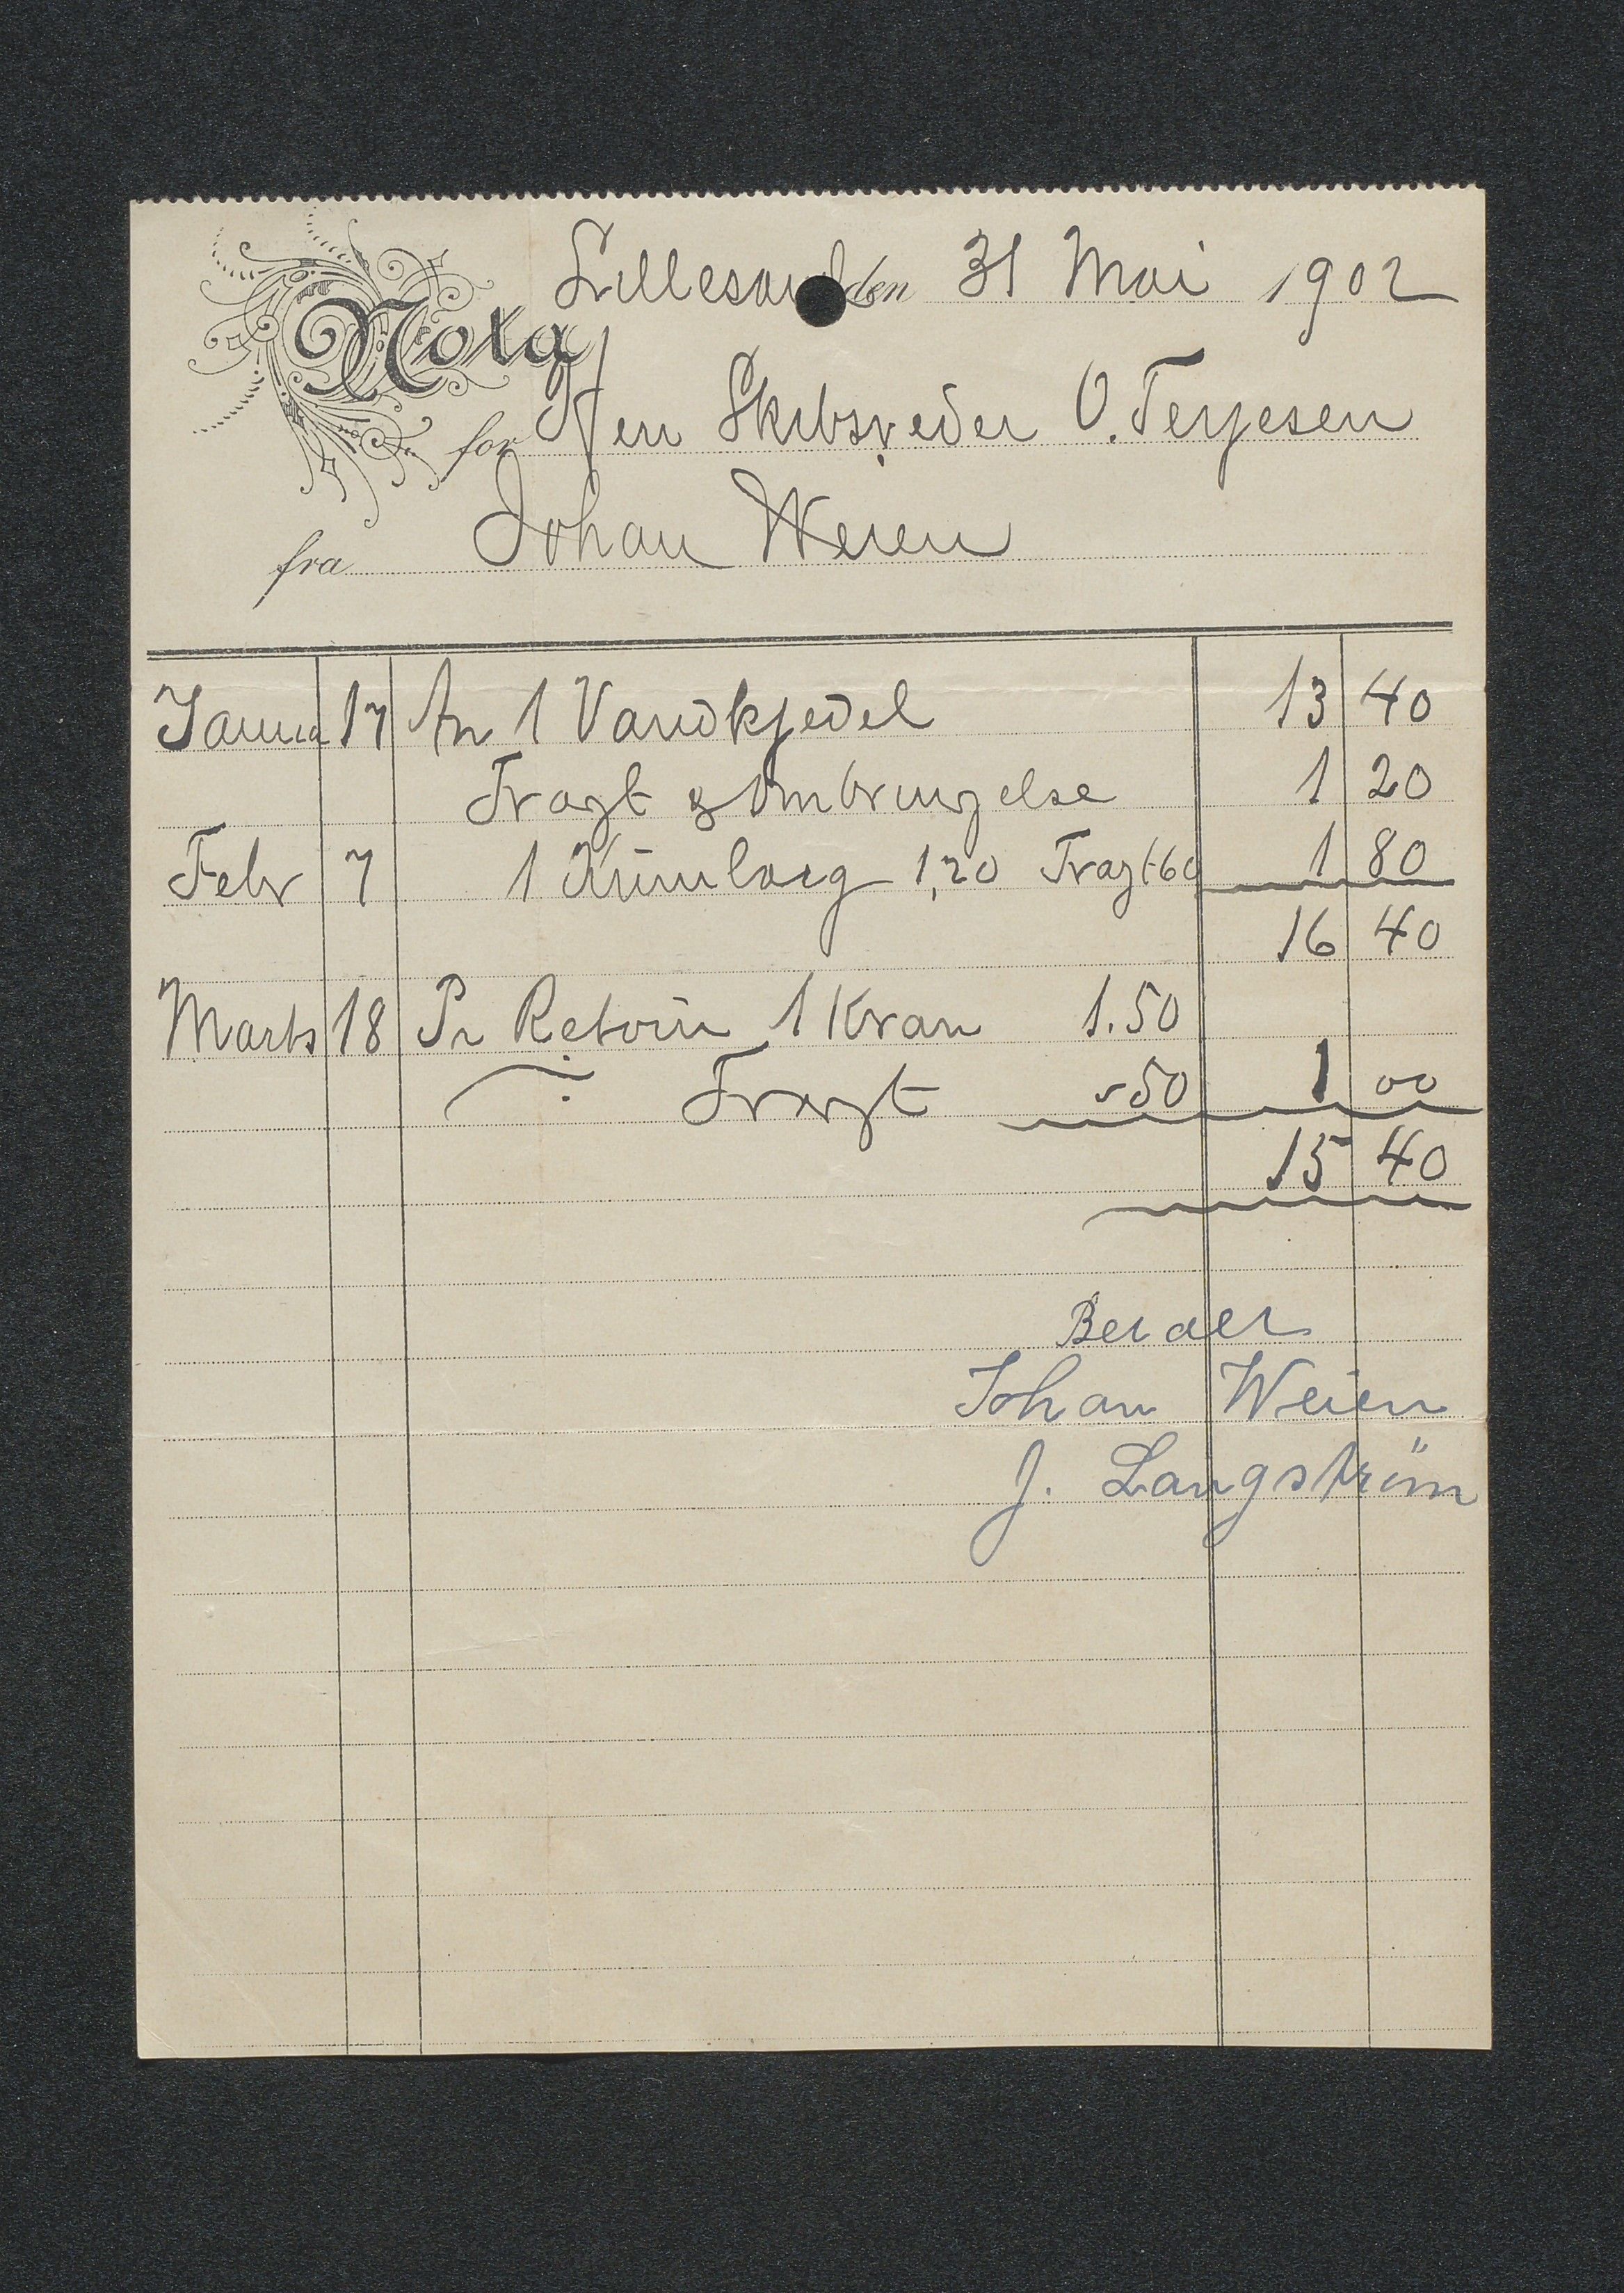 Lillesand den 31 Mai 1902
Nota
for Herr Skibsreder O. Terjesen
fra Johan Weien
Janua 17 An 1 Vandkjedel 13 40
Fragt & Ombringelse 1 20
Febr 7 1 1,20 Fragt 60 1 80
16 40
Marts 18 Pr Retour 1 Kran 1.50
÷ Fragt 50 1 00
15 40
Johan Weien
J. Langström